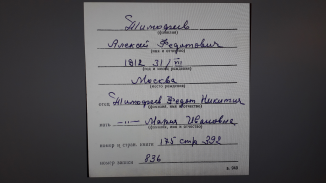 Тимофеев
(фамилия)
Алексей Федотович
(имя и отчество)
1812 31/III
Москва
(место рождения)
отец Тимофеев Федот Никитич
(фамилия, имя и отчество)
мать -"- Мария Ивановна
(фамилия, имя и отчество)
номер и стран. книги 175 стр 392
номер записи 836